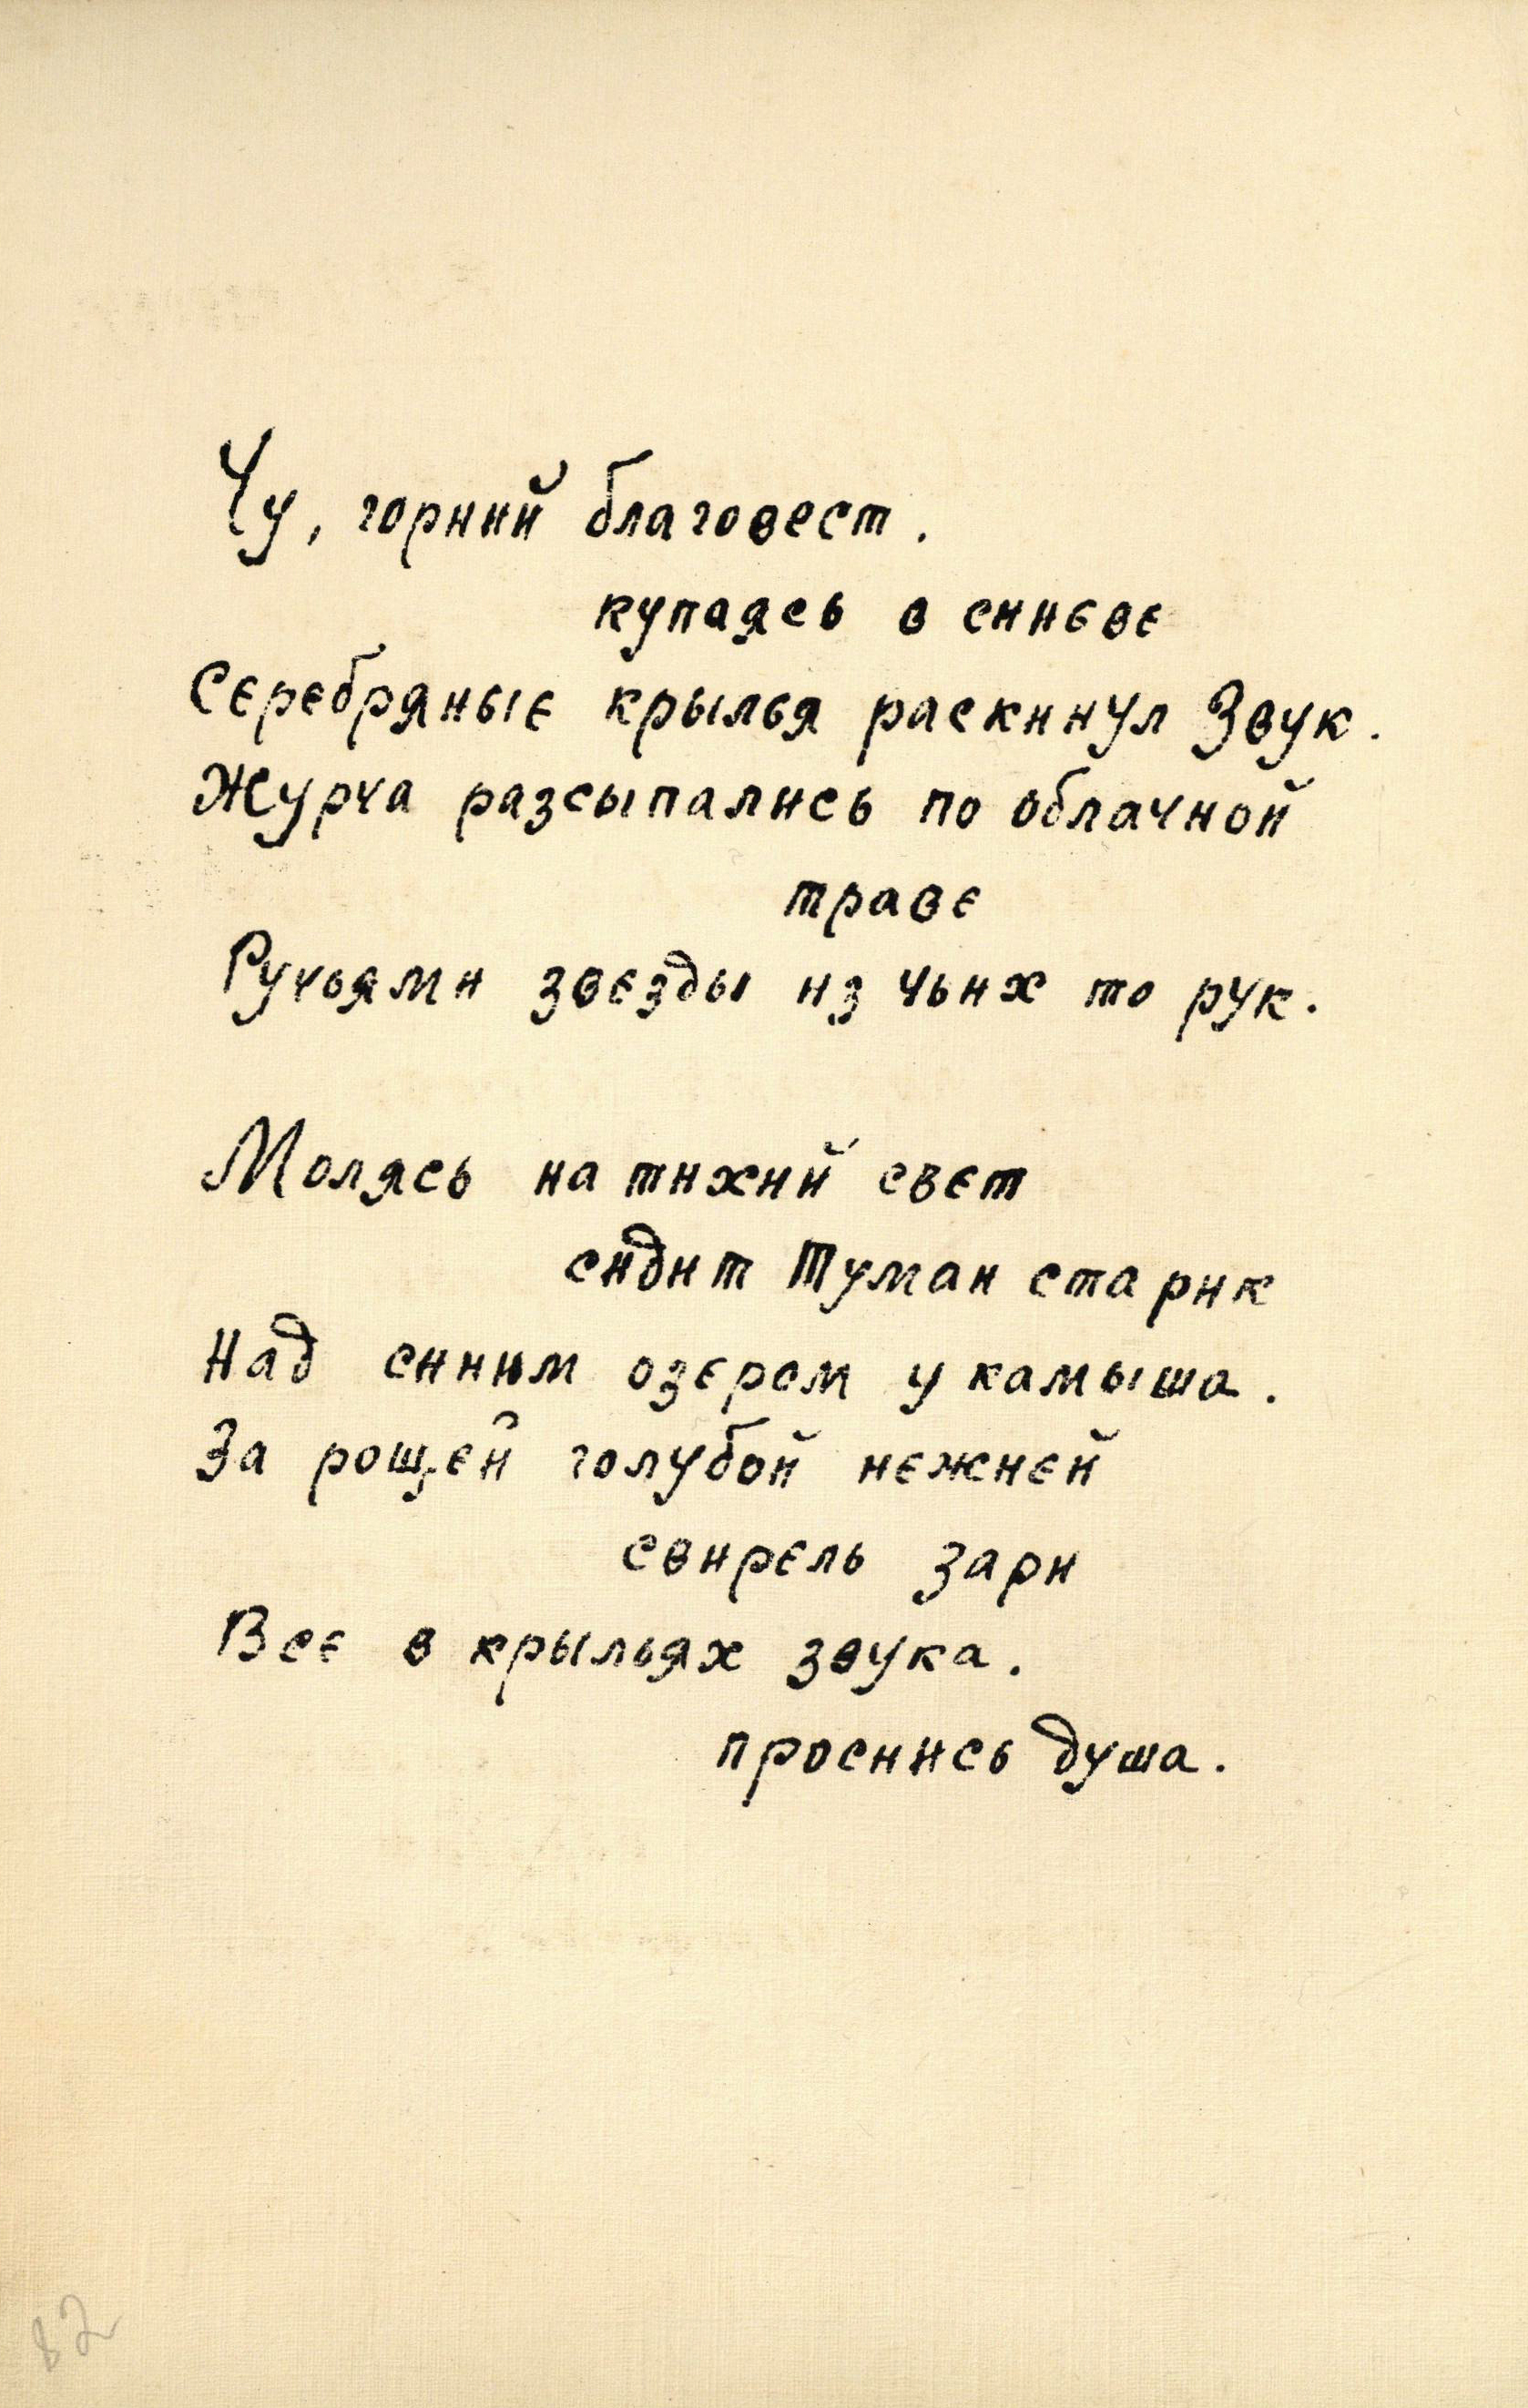 Чу, горний благовест.
купаясь в синеве
Серебряные крылья раскинул Звук.
Журча разсыпались по облачной
траве
Ручьями звезды из чьих то рук.
Молясь на тихий свет
сидит Туман старик
Над синим озером у камыша.
За рощей голубой нежней
свирель зари
Все в крыльях звука.
проснись душа.
82